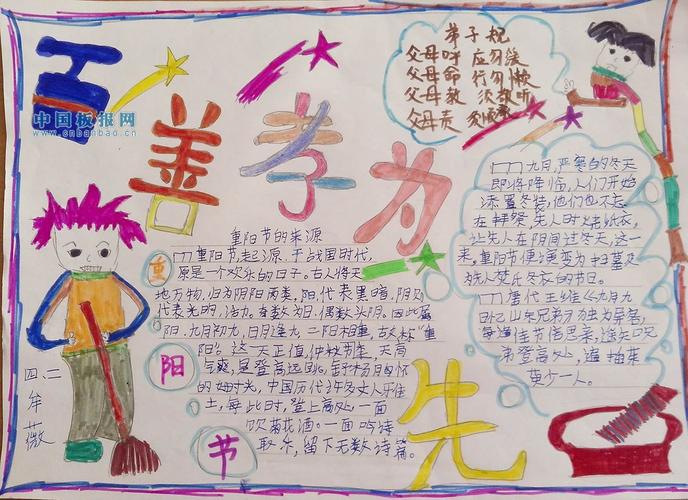 百善孝为先
中国板报网
www.cnbanbao.cn
弟子规
父母呼 应勿缓
父母命 行勿懒
父母教 须敬听
父母责 须顺承
重阳节的来源
重阳节起源于战国时代,
原是一个欢乐的日子。古人将天
地万物,归为阴阳两类,阳,代表黑暗,阴,则
代表光明,活力。奇数为日,偶数头阴。因此属
阳。九月初九,日月逢九,二阳相重,故称“重
阳”。这一天正值,仲秋节至,天高
气爽,是登高远眺,
的好时光,中国历代许多文人牙住
土,每此时,登上高处,一面
饮菊花酒。一面吟诗
取乐,留下无数诗篇。
重
阳
节
九月,严寒的冬天
即将降临,人们开始
添置冬装,他们也不忘
在祭祭,先人时火烧纸衣,
让先人在阴间过冬天,这一
来,重阳节便演变为扫墓及
为先人焚化冬衣的节日。
唐代王维《九月九
日忆山东兄弟》为独为异客,
每逢佳节倍思亲,遥知兄
弟登高处,遍插茱
萸少一人。
四、二
牟薇